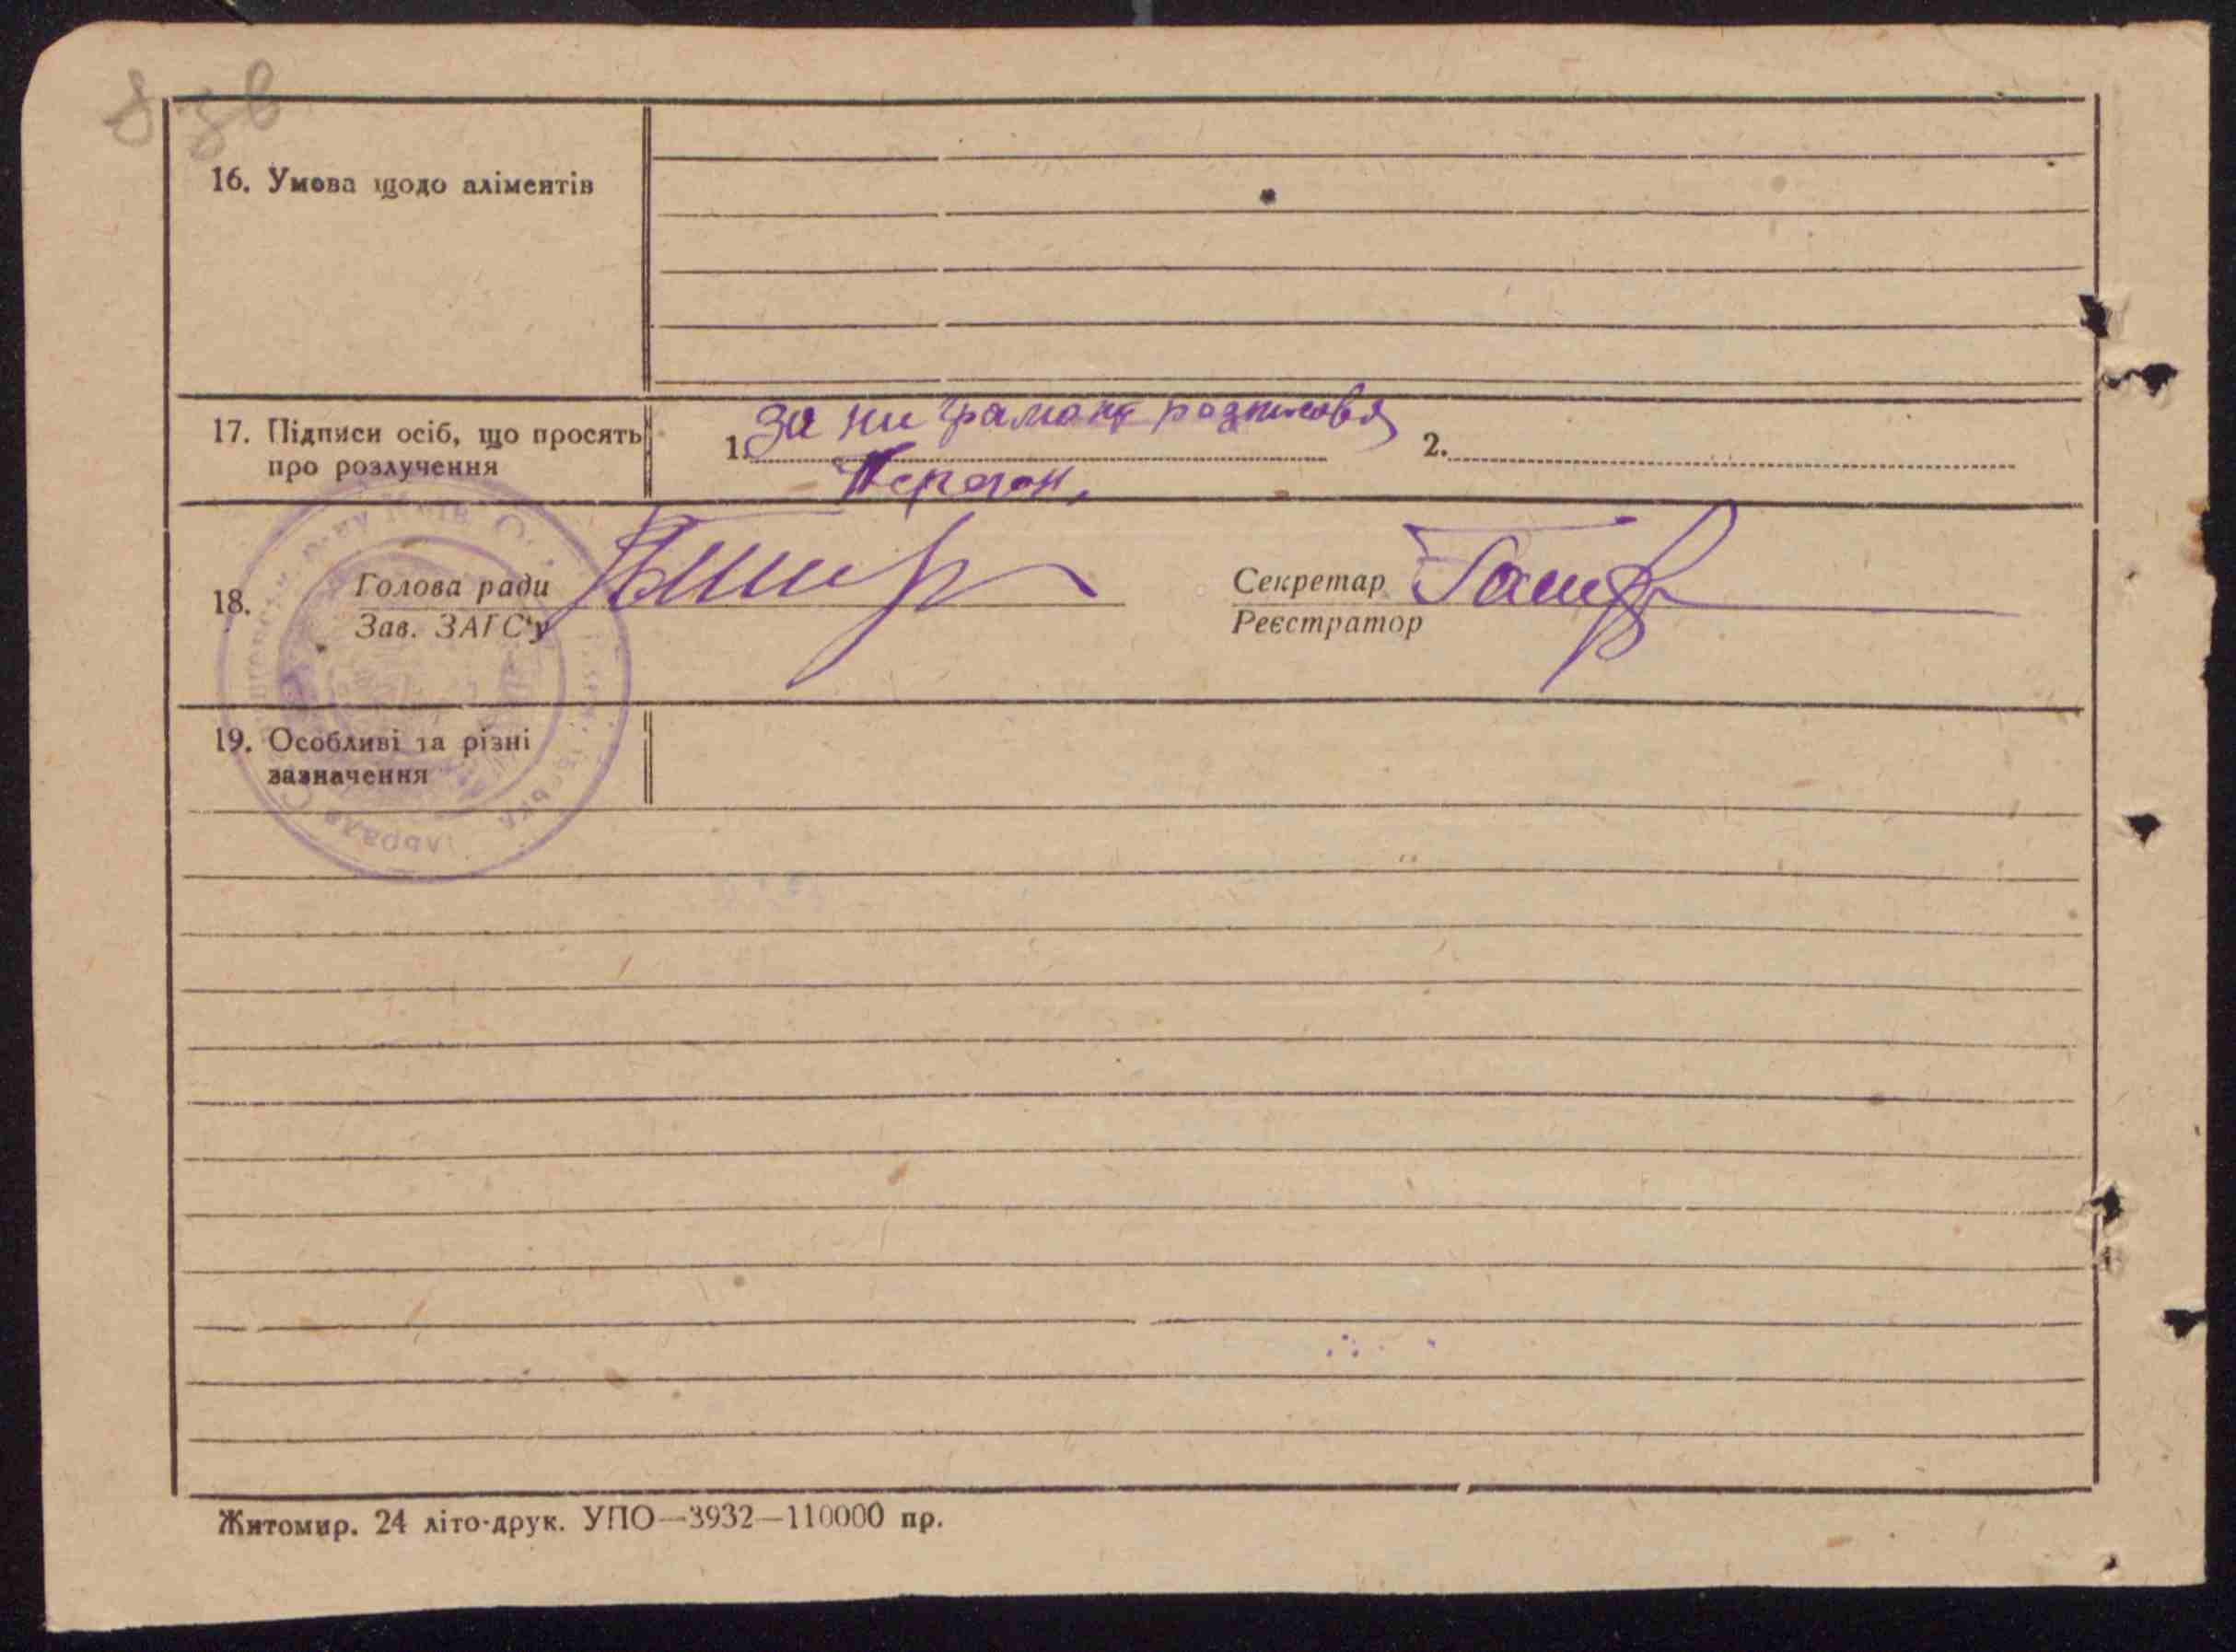 8 зв
16. Умова щодо аліментів
17. Підписи осіб, що просять
про розлучення
1. За ни грамону розписовя
2.
18.
Голова ради
Зав. ЗАГС'у
Секретар
Реєстратор
19. Особливі та різні
зазначення
Житомир. 24 літо-друк. УПО—3932—110000 пр.